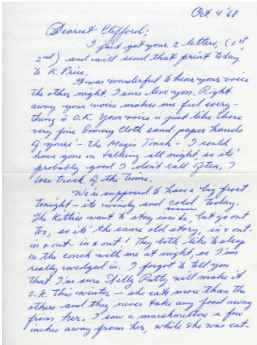 Oct. 4 '68
Dearest Clifford;
I just got your 2 letters, (1st,
2nd) and will send that print today
to K. Price.
It was wonderful to hear your voice
the other night. I sure love you. Right
away your voice makes me feel every-
thing is O.K. Your voice is just like those
very fine Emery Cloth sand paper hands
of yours - the Magic Touch - I could
have gone on talking all night so it's
probably good I don't call often, I
lose track of the time.
We're supposed to have a big frost
tonight - its windy and cold today.
The Kitties want to stay inside, but go out
too, so it's the same old story, in & out -
in & out - in & out! They both like to sleep
on the couch with me at night, so I'm
really wedged in. I forgot to tell you
that I'm sure Fatty Ratty will make it
O.K. this winter - she eats more than the
others and they never take any food away
from her. I saw a marshmallow a few
inches away from her, while she was eat-